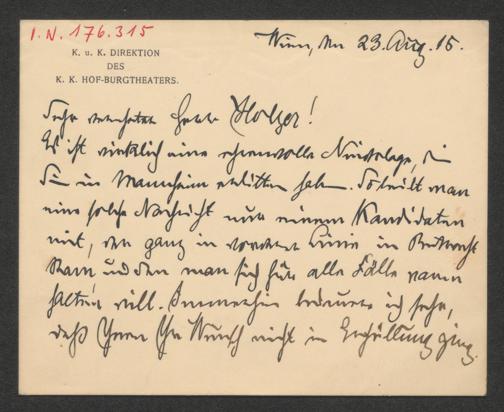 I.N. 176.315
K. u. K. DIREKTION
DES
K. K. HOF-BURGTHEATERS.
Wien, den 23. Aug. 15.
Sehr verehrter Herr Holzer!
Es ist wirklich eine ehrenvolle Niederlage, die
Sie in Mannheim erlitten haben. So teilt man
eine solche Nachricht nur einem Kandidaten
mit, der ganz in vorderer Linie in Betracht
kam und den man sich für alle Fälle warm
halten will. Immerhin bedaure ich sehr,
daß Ihnen Ihr Wunsch nicht in Erfüllung ging.